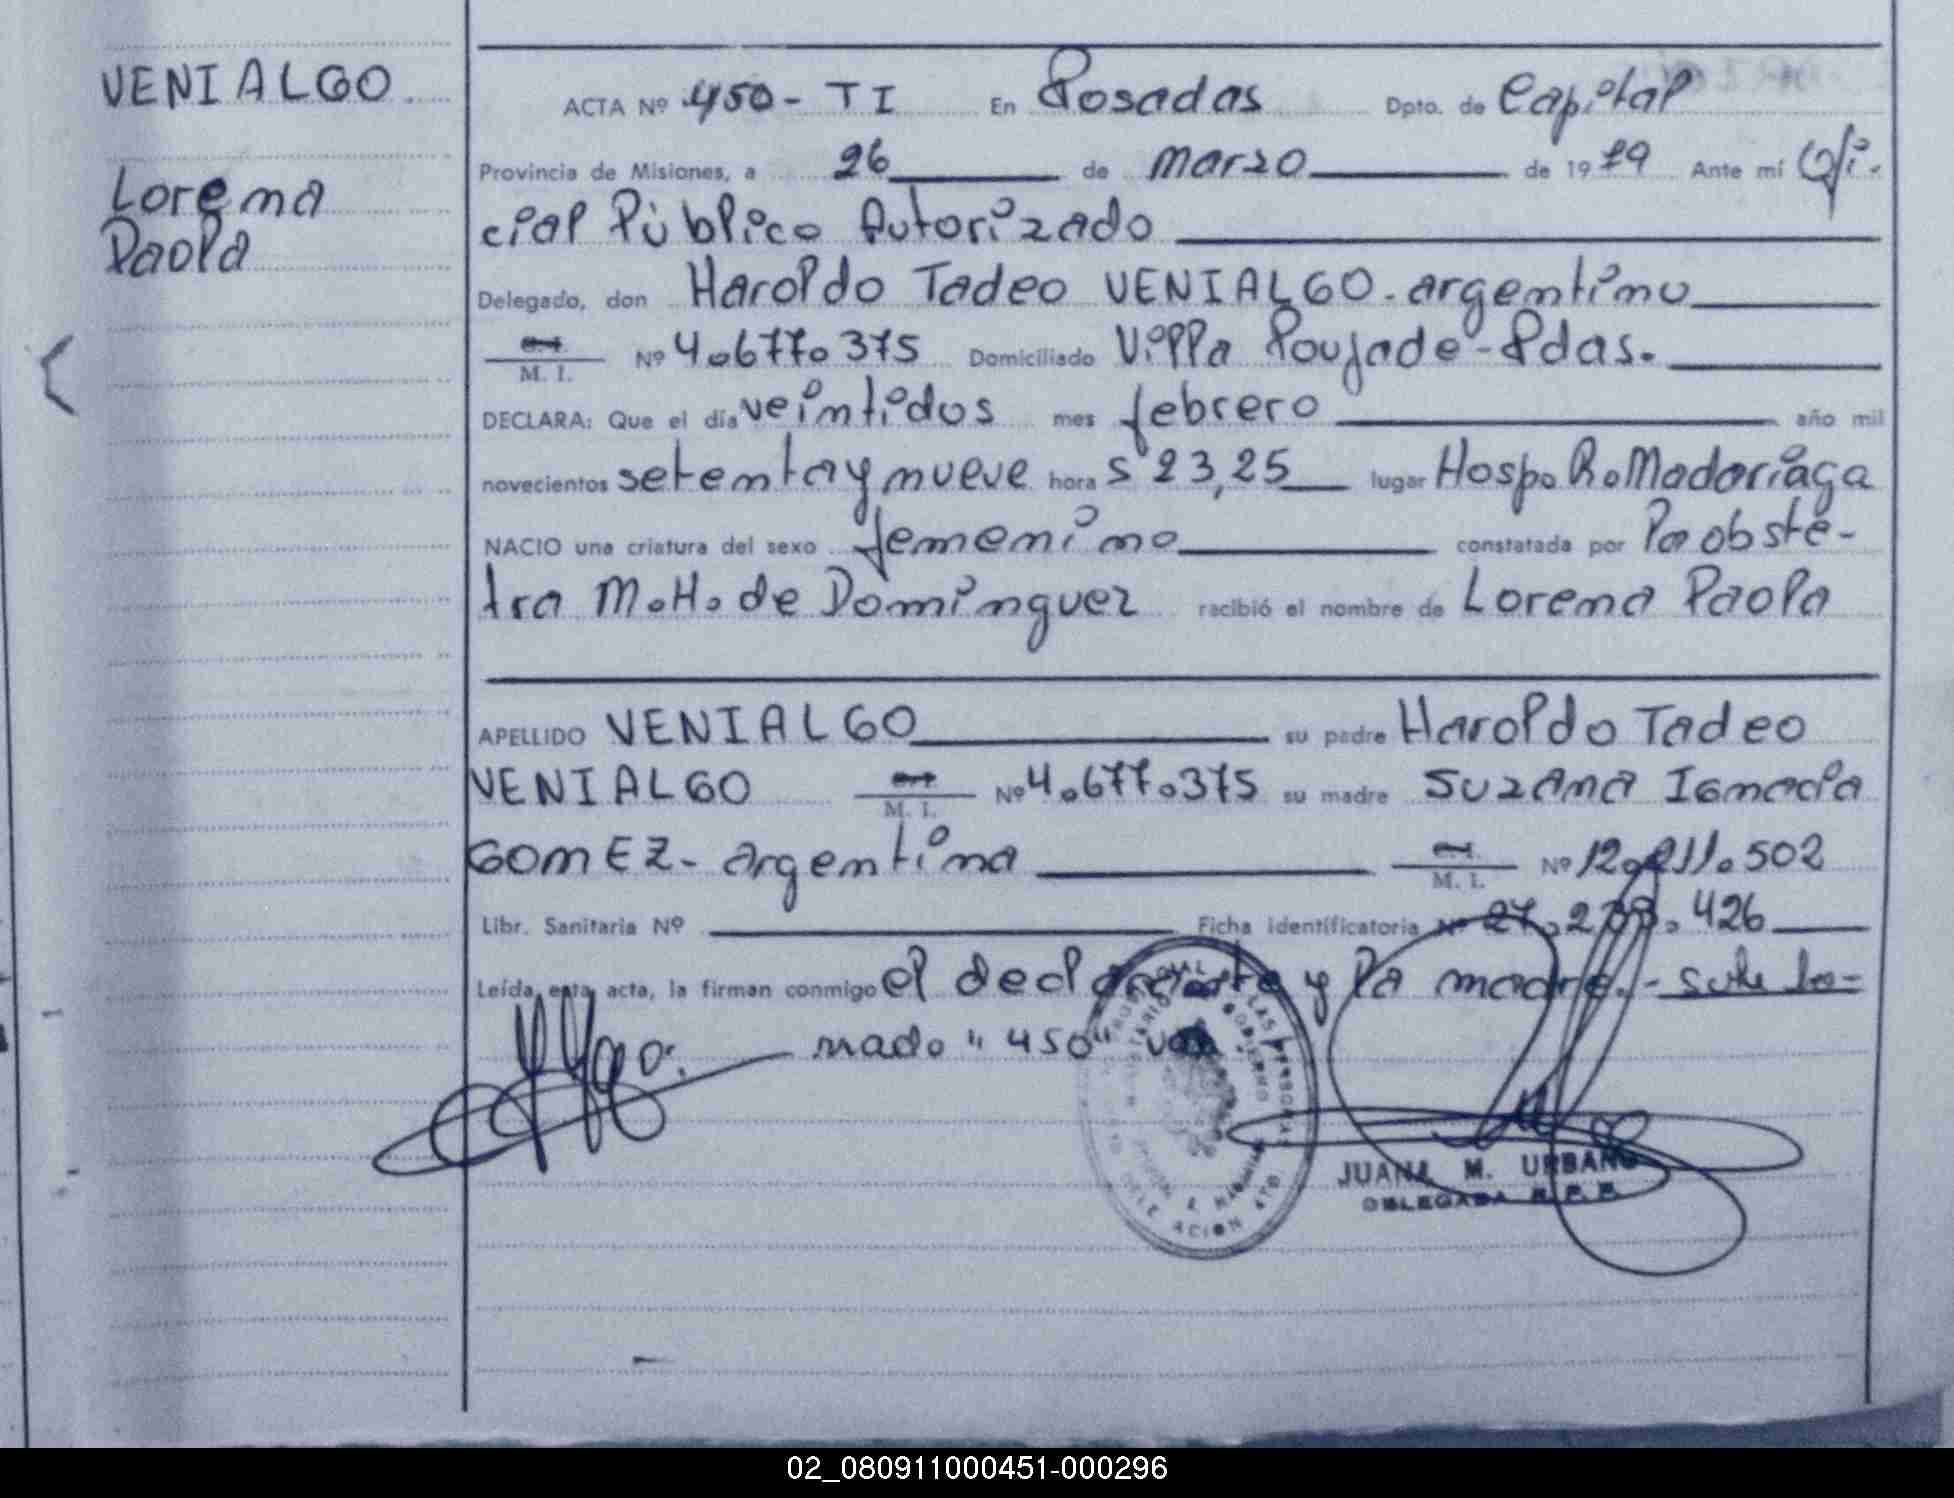 VENIALGO
Lorena
Paola
ACTA Nº 450- TI En Posadas Dpto. de Capital
Provincia de Misiones, a 26 de marzo de 1979 Ante mí Ofi-
cial Público Autorizado
Delegado, don Haroldo Tadeo VENIALGO. argentino
M. I. Nº 4.677.375 Domiciliado Villa Poujade-Pdas.
DECLARA: Que el día veintidos mes febrero año mil
novecientos setenta y nueve hora s 23,25 lugar Hosp. R. Madariaga
NACIO una criatura del sexo femenino constatada por la obste-
tra M.H. de Dominguez recibió el nombre de Lorena Paola
APELLIDO VENIALGO su padre Haroldo Tadeo
VENIALGO M. I. Nº 4.677.375 su madre Suzana Ignacia
GOMEZ- argentina M. I. Nº 12.211.502
Libr. Sanitaria Nº Ficha identificatoria Nº 27.288.426
Leída esta acta, la firman conmigo el declarante y la madre.-
"450"
JUANA M. URBANO
DELEGADA R. P. P.
02_080911000451-000296